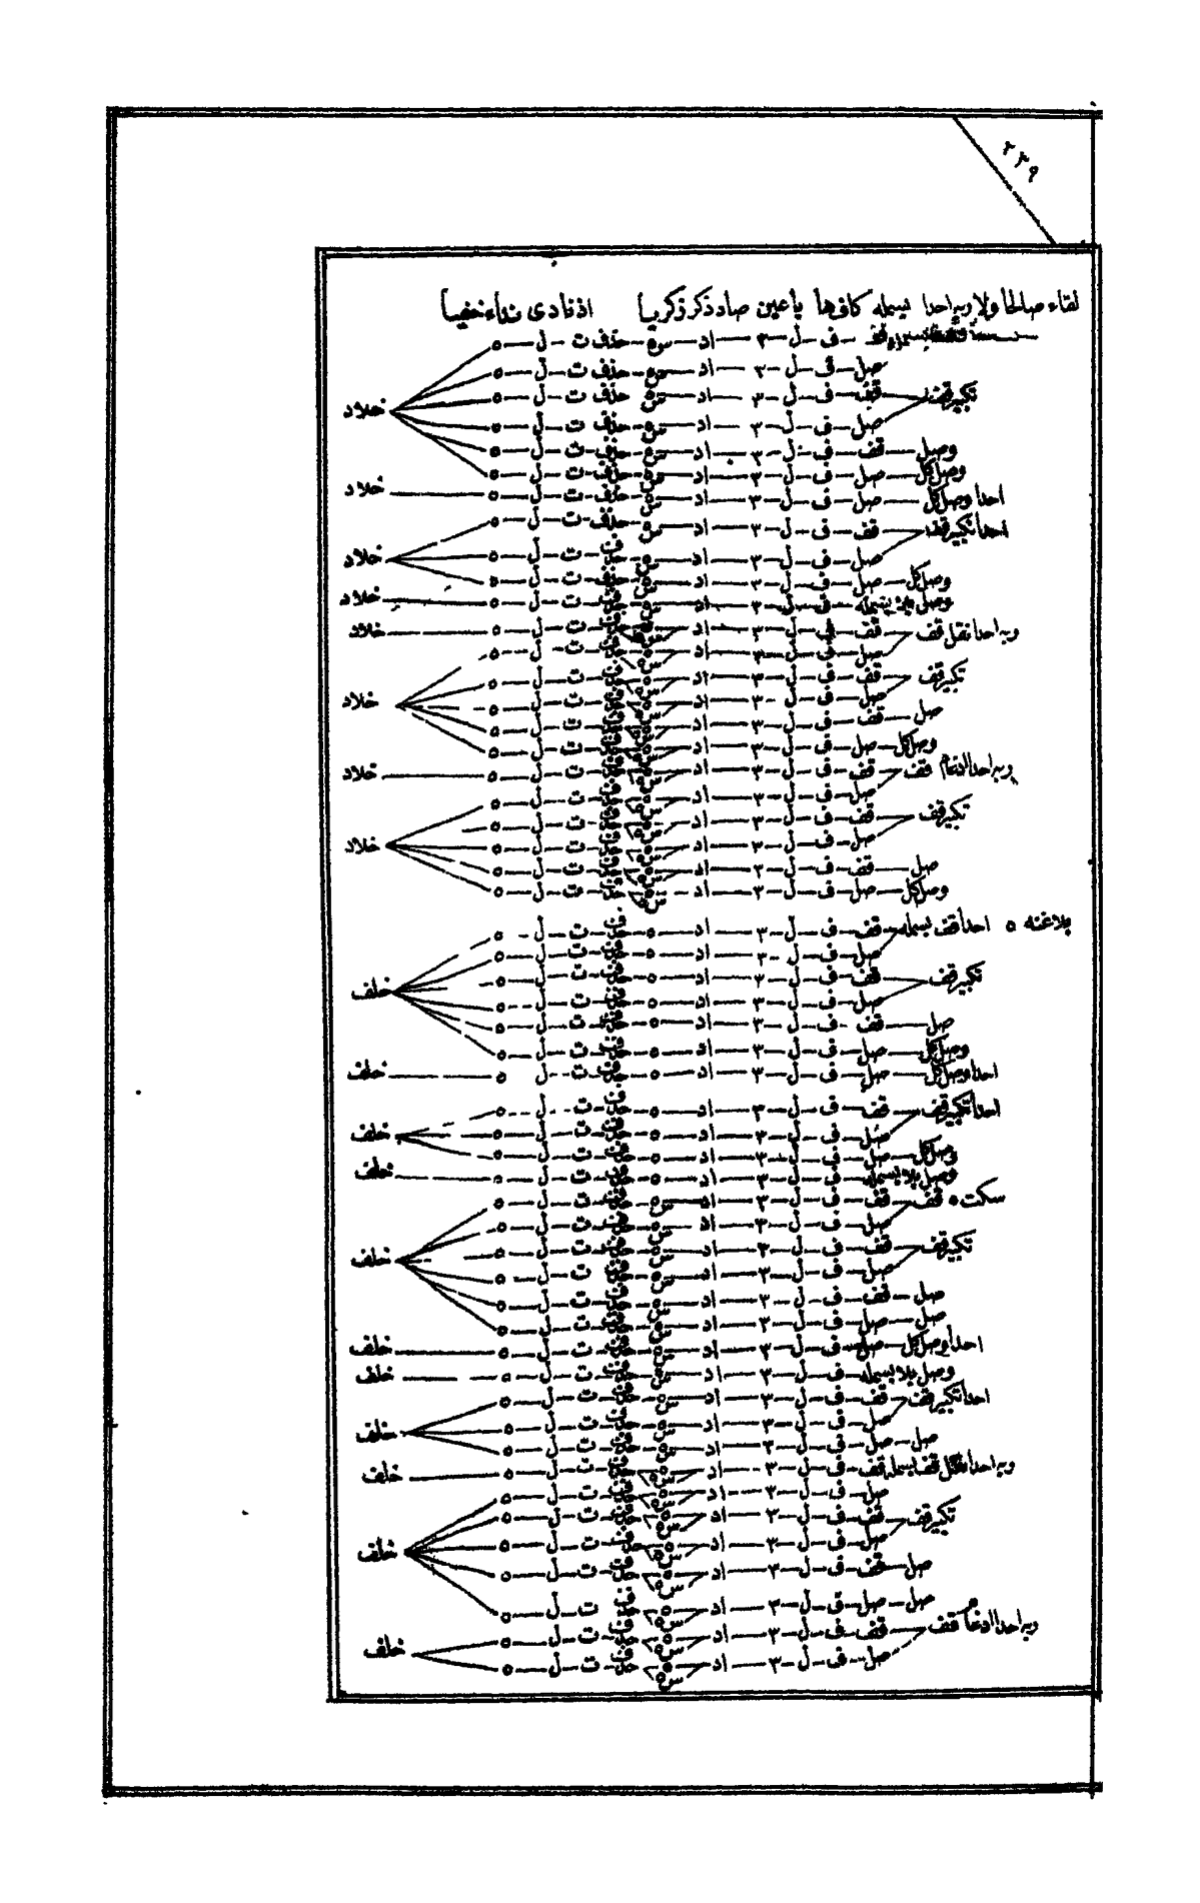 ٢٣٩
لقاء صالحا ولا ربه احدا بسمله كاف ها يا عين صاد ذكر زكريا اذ نادى نداء خفيا
قف — ف — ل — ٣ — اد — س ٥ — حذف ت — ل — ٥
صل — ف — ل — ٣ — اد — س ٥ — حذف ت — ل — ٥
تكبير قف قف — ف — ل — ٣ — اد — س ٥ — حذف ت — ل — ٥ خلاد
صل — ف — ل — ٣ — اد — س ٥ — حذف ت — ل — ٥
وصل — قف — ف — ل — ٣ — اد — س ٥ — حذف ت — ل — ٥
وصل كل — صل — ف — ل — ٣ — اد — س ٥ — حذف ت — ل — ٥
احدا وصل كل — صل — ف — ل — ٣ — اد — س ٥ — حذف — ت — ل — ٥ — خلاد
احدا تكبير قف قف — ف — ل — ٣ — اد — س ٥ — حذف — ت — ل — ٥
صل — ف — ل — ٣ — اد — س ٥ — حذف — ت — ل — ٥ خلاد
وصل كل — صل — ف — ل — ٣ — اد — س ٥ — حذف — ت — ل — ٥
وصل بلا بسمله — ف — ل — ٣ — اد — س ٥ — حذف — ت — ل — ٥ — خلاد
وبه احدا نقل قف قف — ف — ل — ٣ — اد — ت — ل — ٥ — خلاد
صل — ف — ل — ٣ — اد — ت — ل — ٥
تكبير قف قف — ف — ل — ٣ — اد — ت — ل — ٥
صل — ف — ل — ٣ — اد — ت — ل — ٥ خلاد
صل — قف — ف — ل — ٣ — اد — ت — ل — ٥
وصل كل — صل — ف — ل — ٣ — اد — ت — ل — ٥
وبه احدا ادغام قف قف — ف — ل — ٣ — اد — ت — ل — ٥ — خلاد
صل — ف — ل — ٣ — اد — ت — ل — ٥
تكبير قف قف — ف — ل — ٣ — اد — ت — ل — ٥
صل — ف — ل — ٣ — اد — ت — ل — ٥ خلاد
صل — قف — ف — ل — ٣ — اد — ت — ل — ٥
وصل كل — صل — ف — ل — ٣ — اد — ت — ل — ٥
بلا غنه ٥ احدا قف بسمله قف — ف — ل — ٣ — اد — ٥ — حذف — ت — ل — ٥
صل — ف — ل — ٣ — اد — ٥ — حذف — ت — ل — ٥
تكبير قف قف — ف — ل — ٣ — اد — ٥ — حذف — ت — ل — ٥ خلف
صل — ف — ل — ٣ — اد — ٥ — حذف — ت — ل — ٥
صل — قف — ف — ل — ٣ — اد — ٥ — حذف — ت — ل — ٥
وصل كل — صل — ف — ل — ٣ — اد — ٥ — حذف — ت — ل — ٥
احدا وصل كل — صل — ف — ل — ٣ — اد — ٥ — حذف — ت — ل — ٥ — خلف
احدا تكبير قف قف — ف — ل — ٣ — اد — ٥ — حذف — ت — ل — ٥
صل — ف — ل — ٣ — اد — ٥ — حذف — ت — ل — ٥ خلف
وصل كل — صل — ف — ل — ٣ — اد — ٥ — حذف — ت — ل — ٥
وصل بلا بسمله — ف — ل — ٣ — اد — ٥ — حذف — ت — ل — ٥ — خلف
سكت ٥ قف قف — ف — ل — ٣ — اد — س ٥ — حذف — ت — ل — ٥
صل — ف — ل — ٣ — اد — س ٥ — حذف — ت — ل — ٥
تكبير قف قف — ف — ل — ٣ — اد — س ٥ — حذف — ت — ل — ٥ خلف
صل — ف — ل — ٣ — اد — س ٥ — حذف — ت — ل — ٥
صل — قف — ف — ل — ٣ — اد — س ٥ — حذف — ت — ل — ٥
صل — صل — ف — ل — ٣ — اد — س ٥ — حذف — ت — ل — ٥
احدا وصل كل — صل — ف — ل — ٣ — اد — س ٥ — حذف — ت — ل — ٥ — خلف
وصل بلا بسمله — ف — ل — ٣ — اد — س ٥ — حذف — ت — ل — ٥ — خلف
احدا تكبير قف قف — ف — ل — ٣ — اد — س ٥ — حذف — ت — ل — ٥
صل — ف — ل — ٣ — اد — س ٥ — حذف — ت — ل — ٥ خلف
صل — صل — ف — ل — ٣ — اد — س ٥ — حذف — ت — ل — ٥
وبه احدا نقل قف بسمله قف — ف — ل — ٣ — اد — ت — ل — ٥ — خلف
صل — ف — ل — ٣ — اد — ت — ل — ٥
تكبير قف قف — ف — ل — ٣ — اد — ت — ل — ٥
صل — ف — ل — ٣ — اد — ت — ل — ٥ خلف
صل — قف — ف — ل — ٣ — اد — ت — ل — ٥
صل — صل — ف — ل — ٣ — اد — ت — ل — ٥
وبه احدا ادغام قف قف — ف — ل — ٣ — اد — ت — ل — ٥ خلف
صل — ف — ل — ٣ — اد — ت — ل — ٥